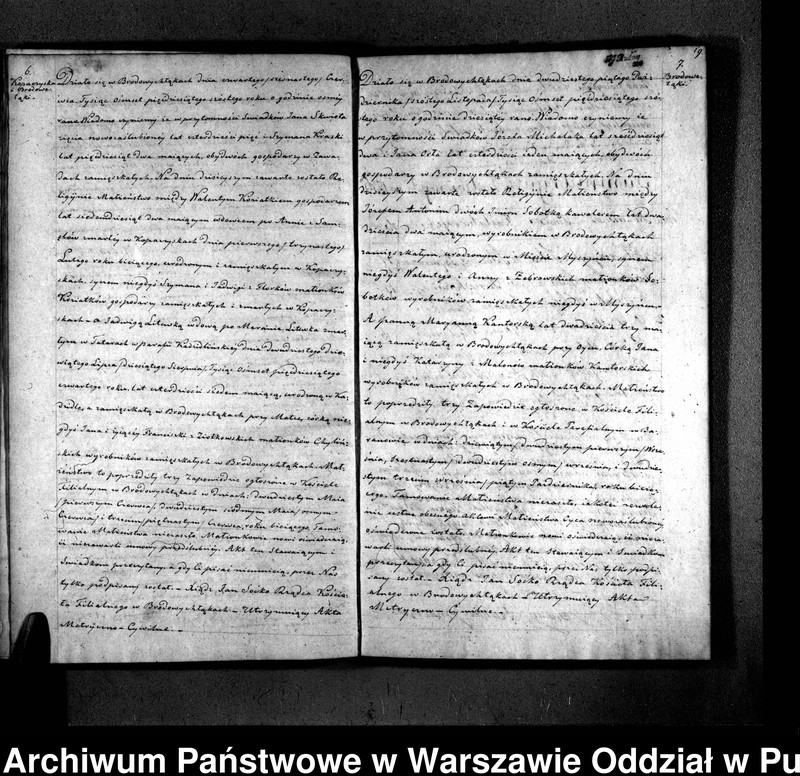 6.
Kopaczyska
i Brodowe-
łąki.
Działo się w Brodowychłąkach dnia czwartego /szesnastego/ Czer-
wca Tysiąc Ośmset pięćdziesiątego szóstego roku o godzinie ósméj
rano. Wiadomo czyniemy iż w przytomności Świadków Jana
lat czterdzieści pięć i Szymona
lat pięćdziesiąt dwa maiących, obydwóch gospodarzy w Zawa-
dach zamięszkałych. Na dniu dzisieyszym zawarte zostało Re-
ligijnie Małżeństwo między Walentym Kosiatkiem gospodarzem
lat siedmdziesiąt dwa maiącym wdowcem po Annie z
zmarłey w Kopaczyskach dnia pierwszego /trzynastego/
Lutego roku bieżącego, urodzonym i zamięszkałym w Kopaczy-
skach, synem niegdyś Szymona i Jadwigi z małżonków
Kosiatków gospodarzy zamięszkałych i zmarłych w Kopaczy-
skach – a Jadwigą Litewką wdową po Marcinie Litewka zmar-
łym w Tatarach w parafii Kadzidlińskiej dnia dwudziestego dzie-
wiątego Lipca /dziesiątego Sierpnia/ Tysiąc Ośmset pięćdziesiątego
czwartego roku, lat czterdzieści siedem maiącą, urodzoną w Ka-
dzidle, a zamięszkałą w Brodowychłąkach przy Matce, córką nie-
gdyś Jana i żyiącéy Franciszki z Ziółkowskich małżonków
skich wyrobników zamięszkałych w Brodowychłąkach. Mał-
żeństwo to poprzedziły trzy Zapowiedzie ogłoszone w Kościele
Filialnym w Brodowychłąkach w dniach: dwudziestym Maia
/pierwszym Czerwca/, dwudziestym siódmym Maia /ósmym
Czerwca/ i trzecim /piętnastym/ Czerwca, roku bieżącego. Tamo-
wanie Małżeństwa niezaszło. Małżonkowie nowi oświadczaią,
iż niezawarli umowy przedślubnéy. Akt ten stawaiącym i
Świadkom przeczytany, a gdy ci pisać nieumieią, przez Nas
tylko podpisany został. – Xiądz Jan Sośko Rządca Kościo-
ła Filialnego w Brodowychłąkach – Utrzymuiący Akta
Metryczno – Cywilne. –
19
7.
Brodowe-
łąki
Działo się w Brodowychłąkach dnia dwudziestego piątego Paź-
dziernika /szóstego Listopada/ Tysiąc Ośmset pięćdziesiątego szó-
stego roku o godzinie dziesiątey rano. Wiadomo czyniemy iż
w przytomności Świadków Józefa Michalaka lat sześćdziesiąt
dwa i Jana Osta lat czterdzieści ieden maiących, obydwóch
gospodarzy w Brodowychłąkach zamięszkałych. Na dniu
dzisieyszym zawarte zostało Religijnie Małżeństwo między
Józefem Antonim dwóch Imion Sobotką kawalerem lat dwa-
dzieścia dwa maiącym, wyrobnikiem w Brodowychłąkach
zamięszkałym urodzonym w Mieście Myszyńcu, synem
niegdyś Walentego i Anny z Żebrowskich małżonków So-
botków wyrobników zamięszkałych niegdyś w Myszyńcu –
A Panną Maryanną Kantorską, lat dwadzieścia trzy ma-
iącą zamięszkałą w Brodowychłąkach przy Oycu, Córką Jana
i niegdyś Katarzyny z małżonków Kantorskich
wyrobników zamięszkałych w Brodowychłąkach. Małżeństwo
to poprzedziły trzy Zapowiedzie ogłoszone w Kościele Fili-
alnym w Brodowychłąkach i w Kościele Parafialnym w Ba-
ranowie, w dniach: dziewiątym /dwudziestym pierwszym/ Wrze-
śnia, szesnastym /dwudziestym ósmym/ września, i dwudzie-
stym trzecim września /piątym Października/, roku bieżą-
cego. Tamowanie Małżeństwa niezaszło,
obecnego Aktem Małżeństwa Oyca nowozaślubioney,
oświadczone zostało. Małżonkowie nowi oświadczaią, iż nieza-
warli umowy przedślubnéy. Akt ten stawaiącym i Świadkom
przeczytany, a gdy ci pisać nieumieią, przez Nas tylko podpi-
sany został. – Xiądz Jan Sośko Rządca Kościoła Fili-
alnego w Brodowychłąkach Utrzymuiący Akta
Metryczno – Cywilne. –
Archiwum Państwowe w Warszawie Oddział w Pu